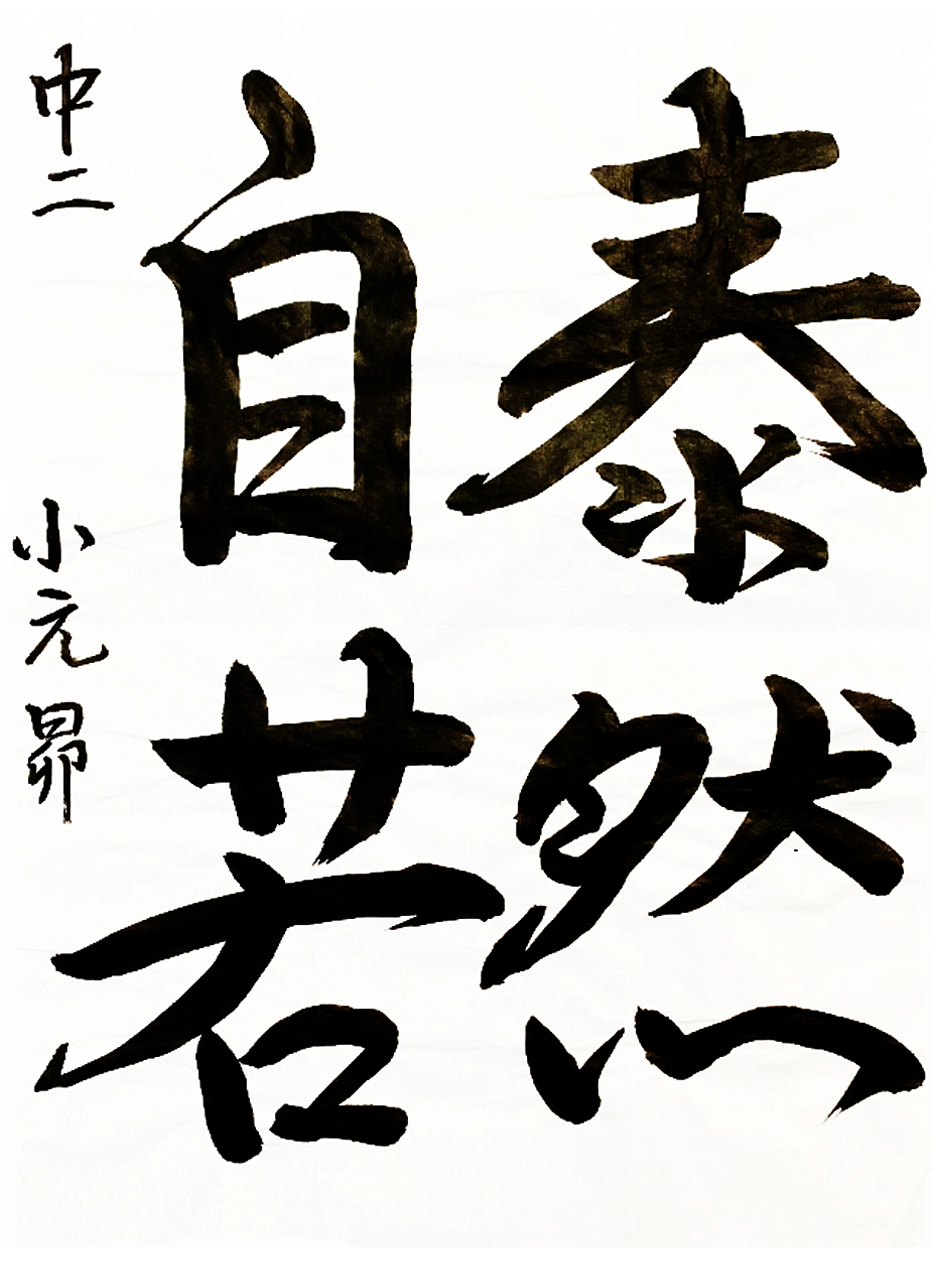 泰然
自若
中二 小元昴